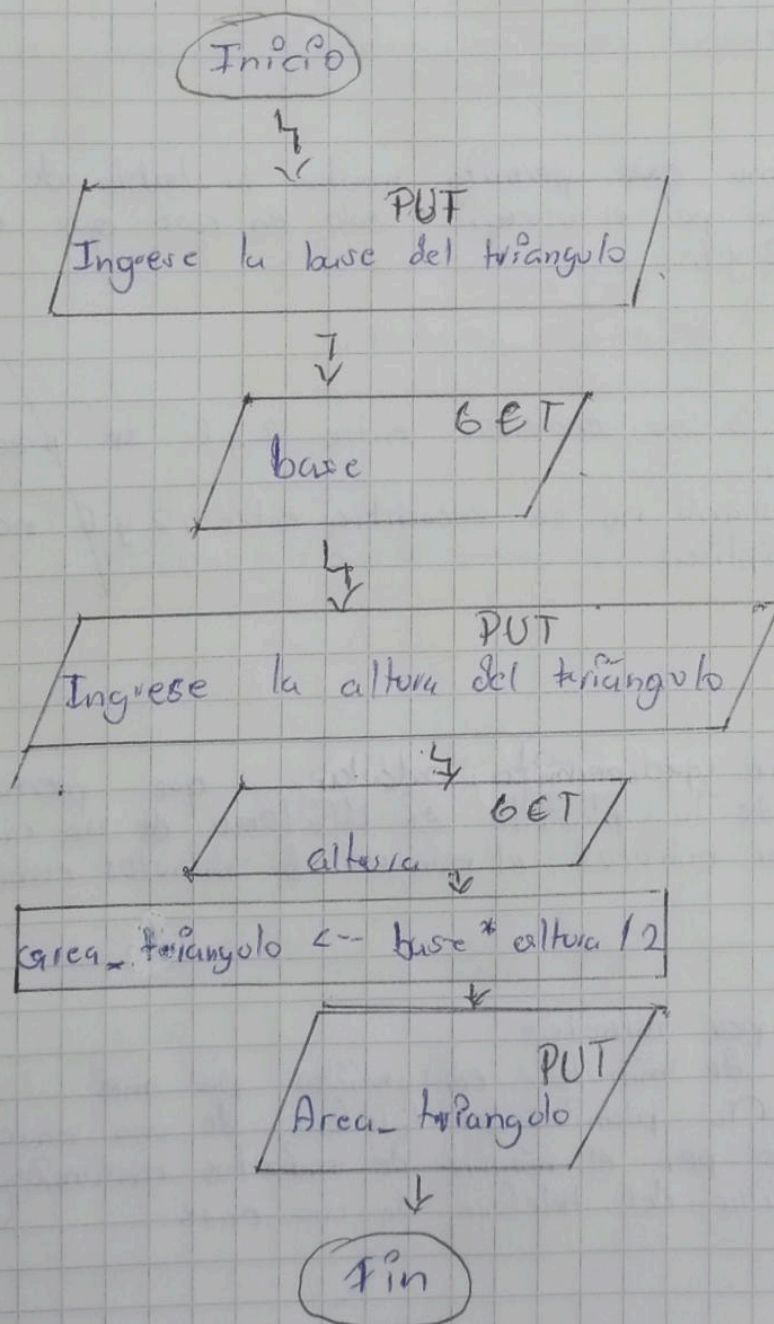 Inicio
PUT
Ingrese la base del triángulo
GET
base
PUT
Ingrese la altura del triángulo
GET
altura
area_triangulo <-- base * altura / 2
PUT
Area_triangulo
Fin